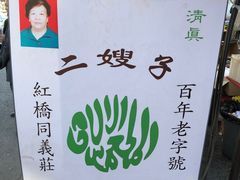 清真
二嫂子
百年老字號
紅橋同義莊